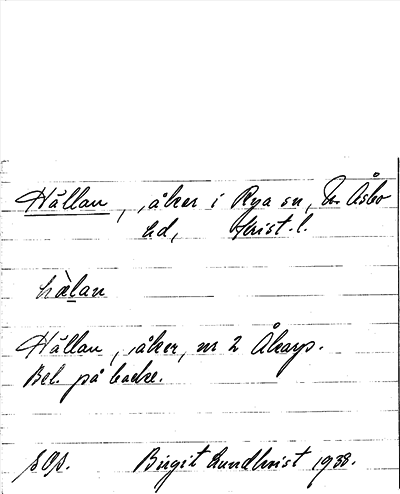 Hällan, åker i Rya sn, N. Åsbo
hd, Krist. l.
hæ̀lan
Hällan, åker, nr 2 Åkarp.
Bel. på backe.
Birgit Lundkvist 1938.